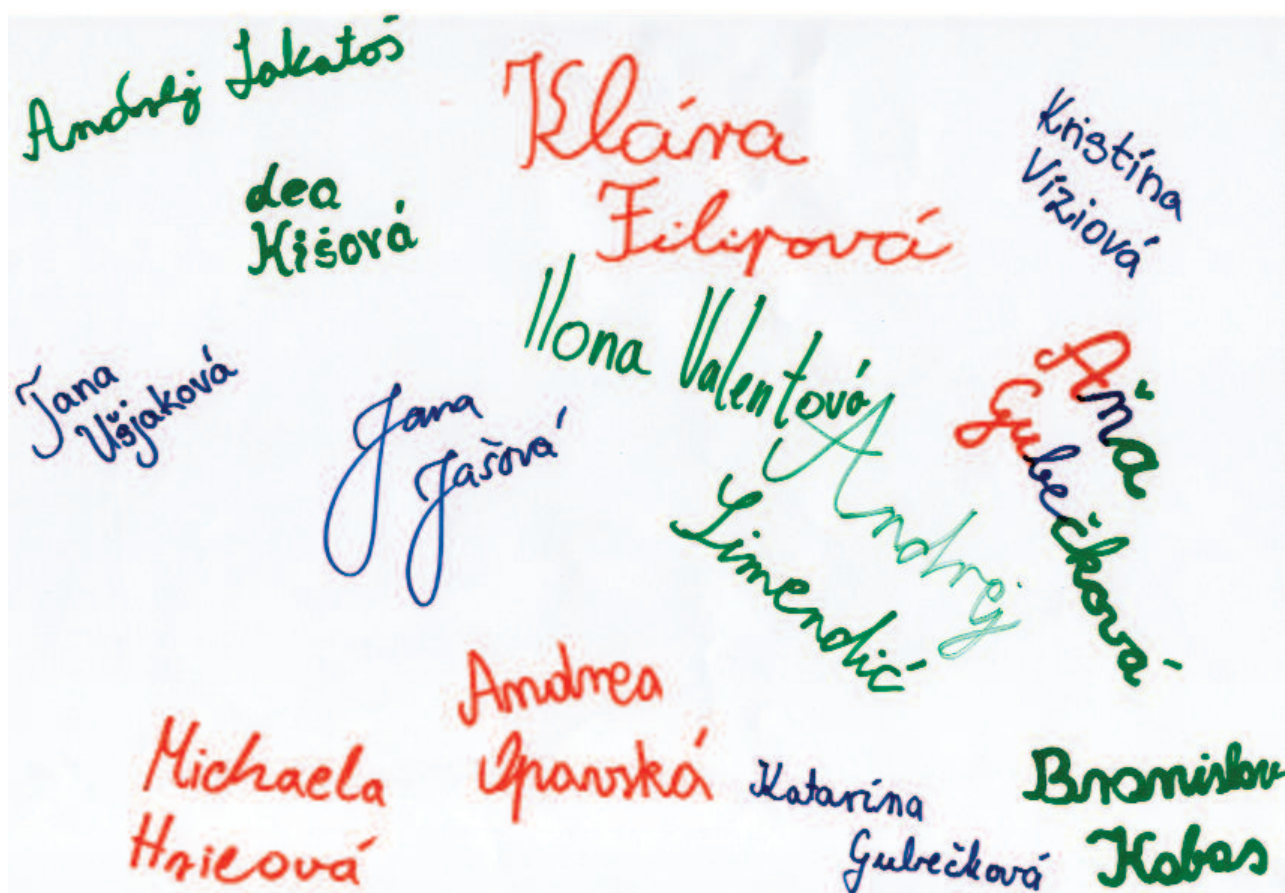 Andrej Lakatoš
Klára
Filipová
Kristína
Víziová
Lea
Kišová
Ilona Valentová
Jana
Ušjaková
Jana
Jašová
Aňa
Gubečková
Andrej
Simendić
Andrea
Opavská
Michaela
Hricová
Katarína
Gubečková
Branislav
Kabas